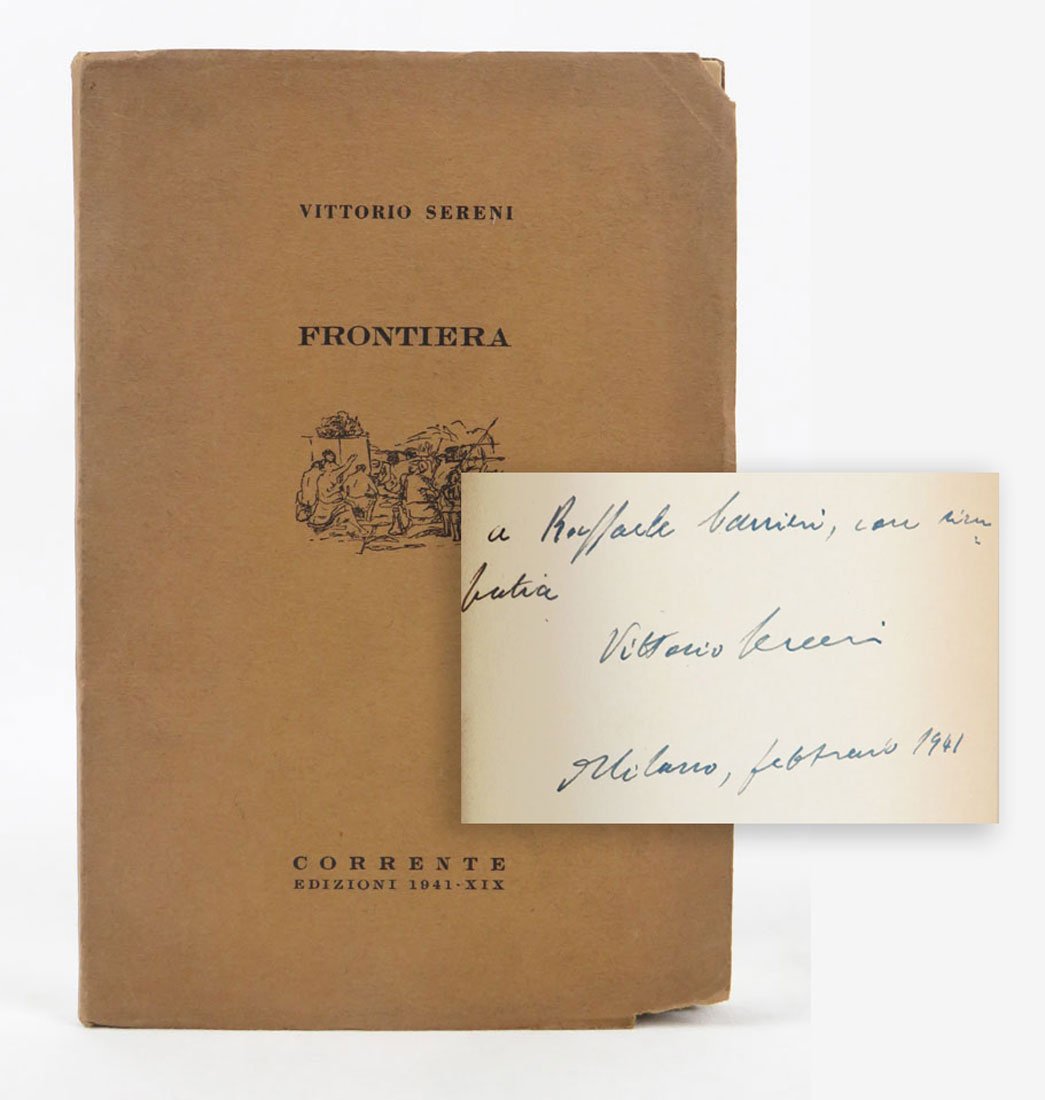 VITTORIO SERENI
FRONTIERA
CORRENTE
EDIZIONI 1941-XIX
a Raffaele Carrieri, con sim=
patia
Vittorio Sereni
Milano, febbraio 1941